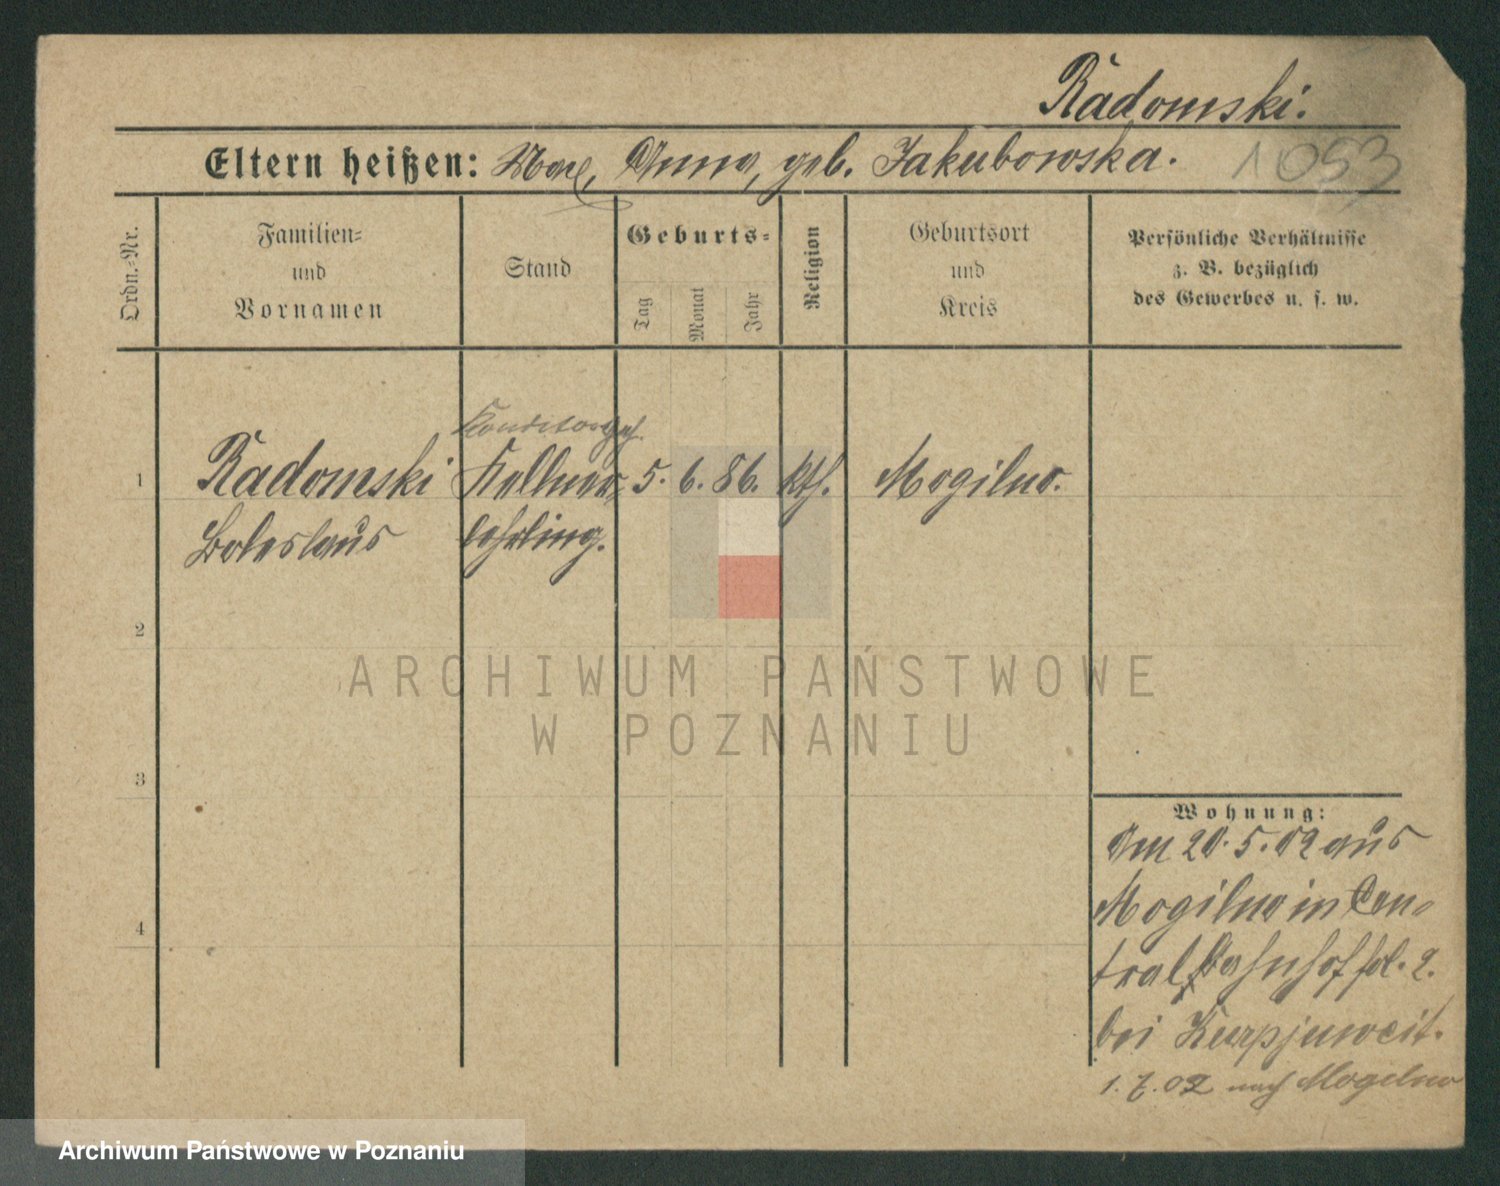 Radomski.
Eltern heißen: Max, Anna, geb. Jakubowska. 1053
Ordn.-Nr.
Familien-
und
Vornamen
Stand
Geburts-
Tag
Monat
Jahr
Religion
Geburtsort
und
Kreis
Persönliche Verhältnisse
z. B. bezüglich
des Gewerbes u. s. w.
Konditorgeh.
1 Radomski Kellner- 5. 6. 86. kth. Mogilno.
Boleslaus lehrling.
2
3
4
Wohnung:
Am 20.5.02 aus
Mogilno in Cen-
tral Bahnhof fol. 2.
bei Kurpjuweit.
1.7.02 nach Mogilno
ARCHIWUM PAŃSTWOWE
W POZNANIU
Archiwum Państwowe w Poznaniu